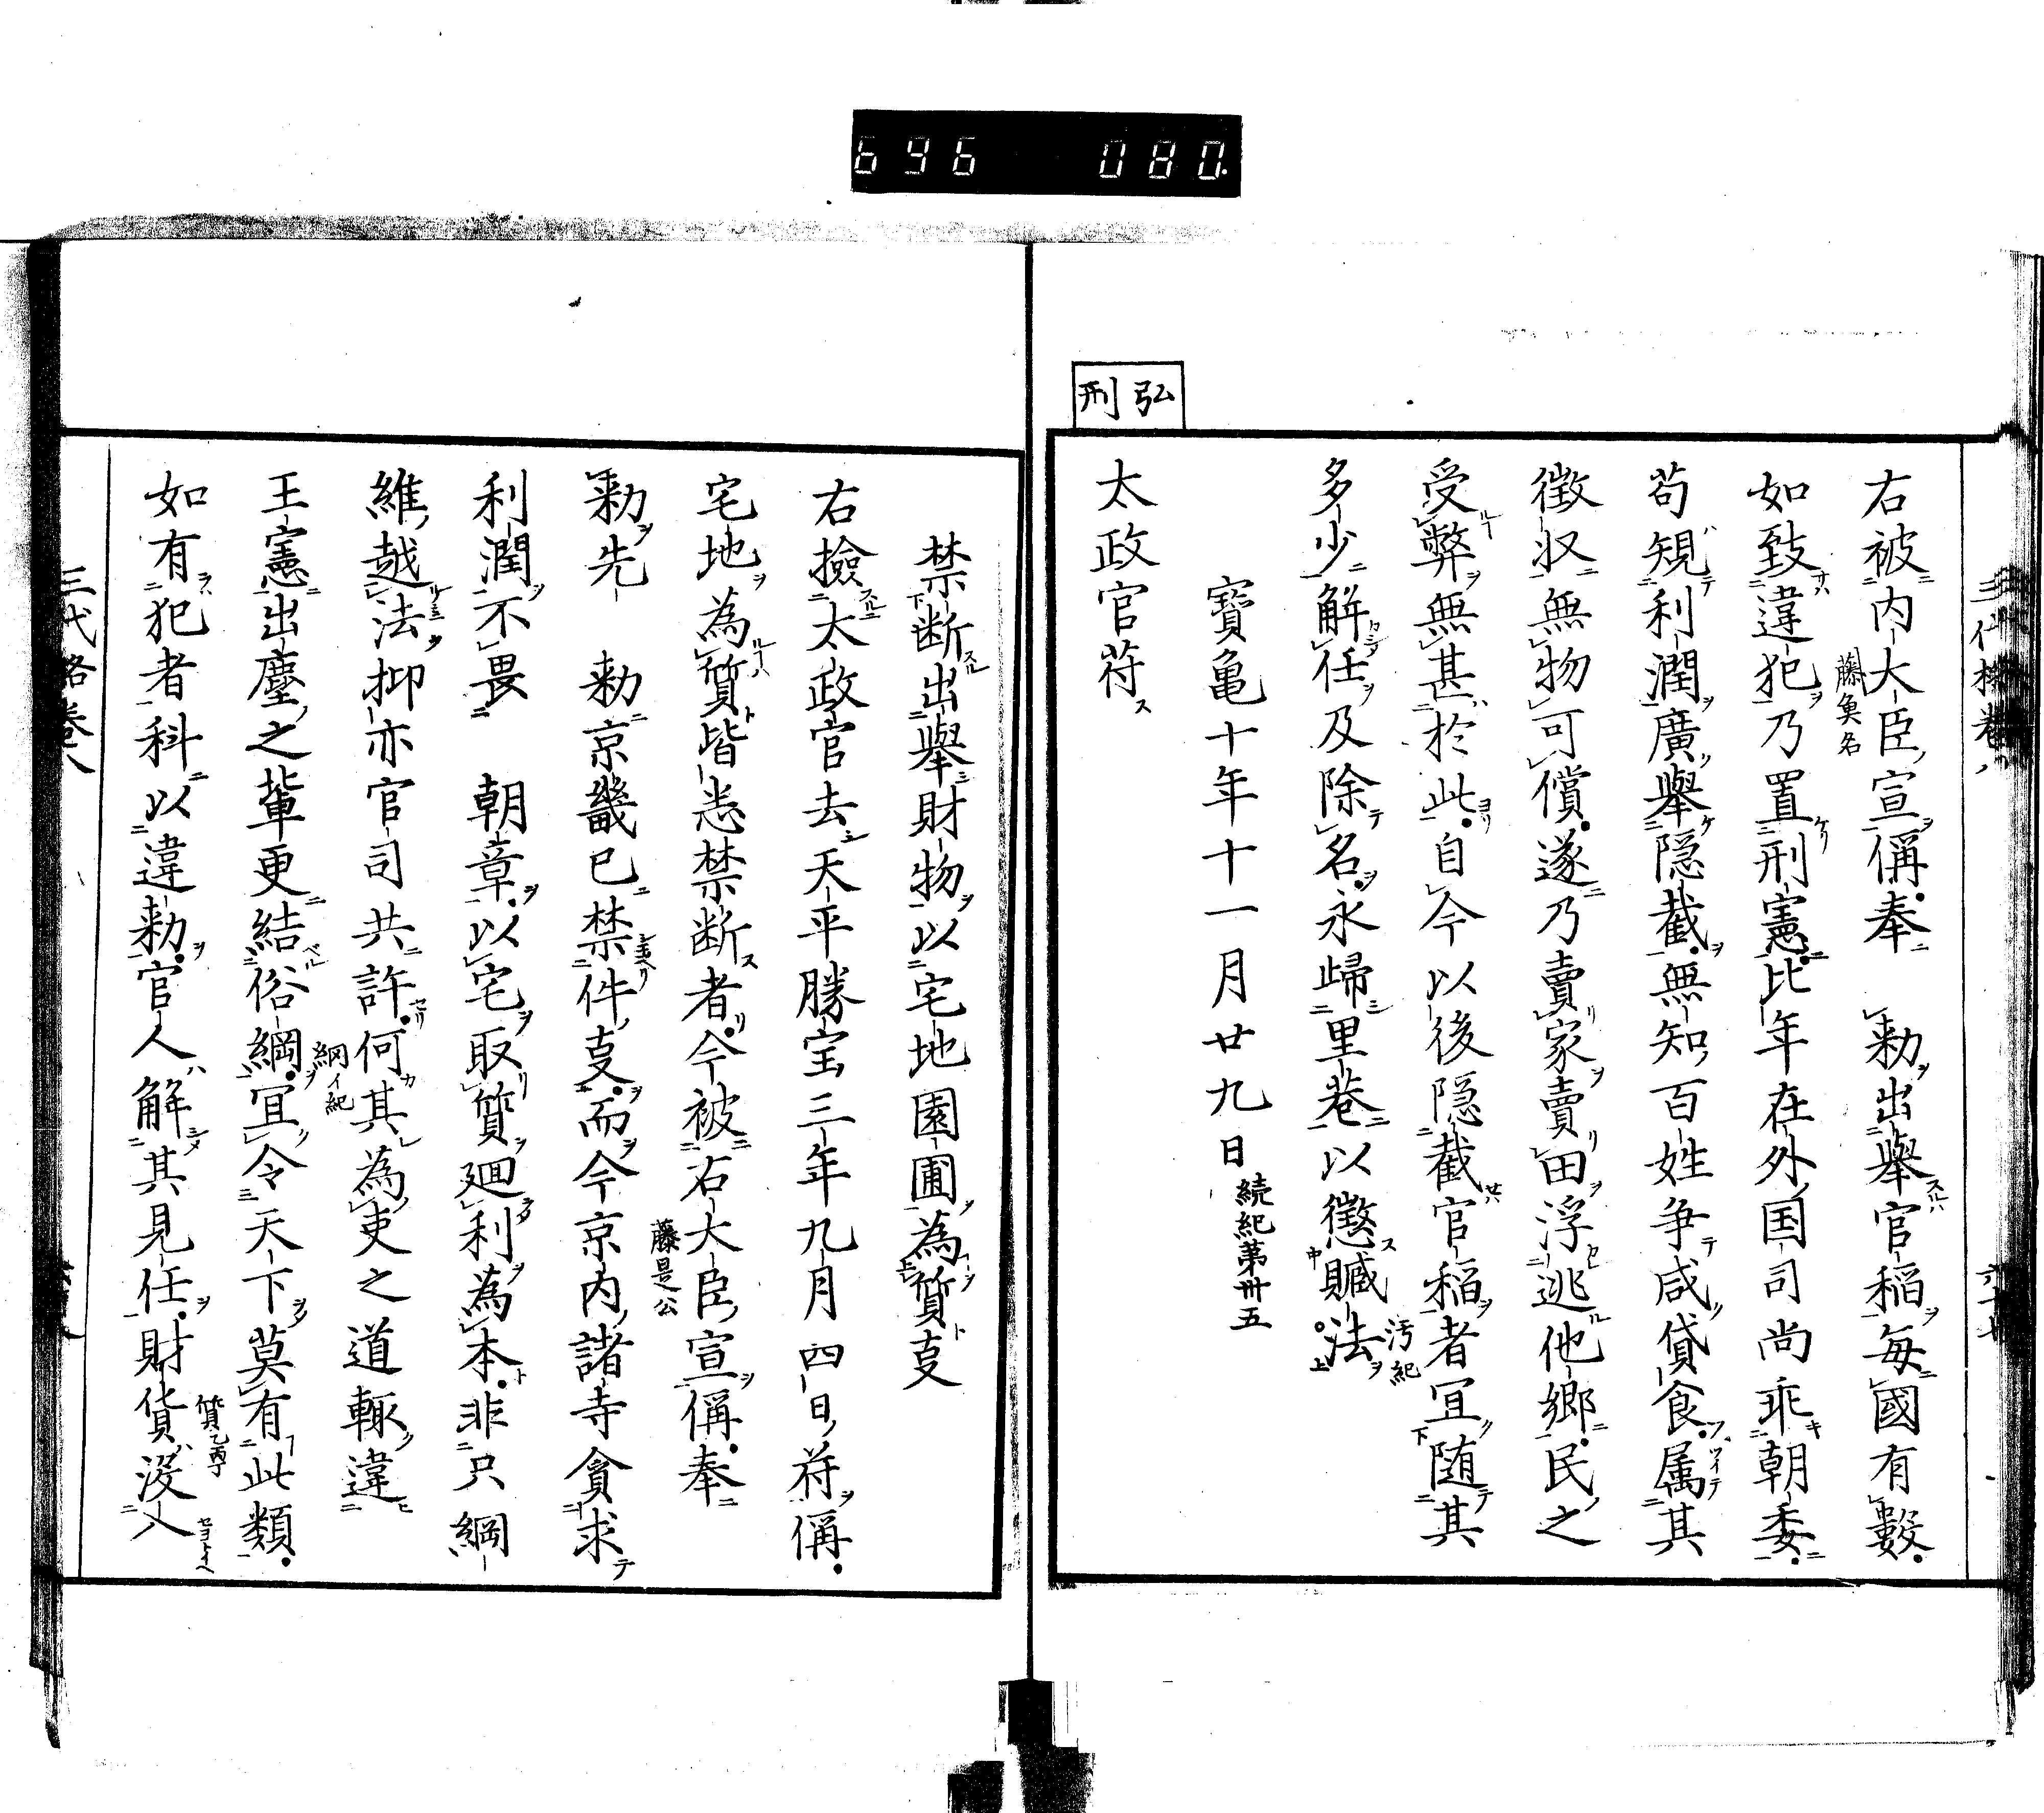 696 080
弘刑
右被内大臣宣偁奉 勅出舉官稲毎國有數
藤魚名
如致違犯乃置刑憲比年在外国司尚乖朝委
苟規利潤廣舉隠截無知百姓争咸貸食属其
徴収無物可償遂乃賣家賣田浮逃他郷民之
受弊無甚於此自今以後隠截官稲者宜随其
汚紀
多少解任及除名永歸里巷以懲贓法
寳亀十年十一月廿九日 続紀第卅五
太政官符
禁断出舉財物以宅地園圃為質叓
右撿太政官去天平勝宝三年九月四日符偁
宅地為質皆悉禁断者今被右大臣宣偁奉
藤是公
勅先 勅京畿已禁件叓而今京内諸寺貪求
利潤不畏 朝章以宅取質廻利為本非只綱
維越法抑亦官司共許何其為吏之道輙違
網イ紀
王憲出塵之輩更結俗綱宜令天下莫有此類
如有犯者科以違勅官人解其見任財貨没入
質乙丙丁
三代格巻八